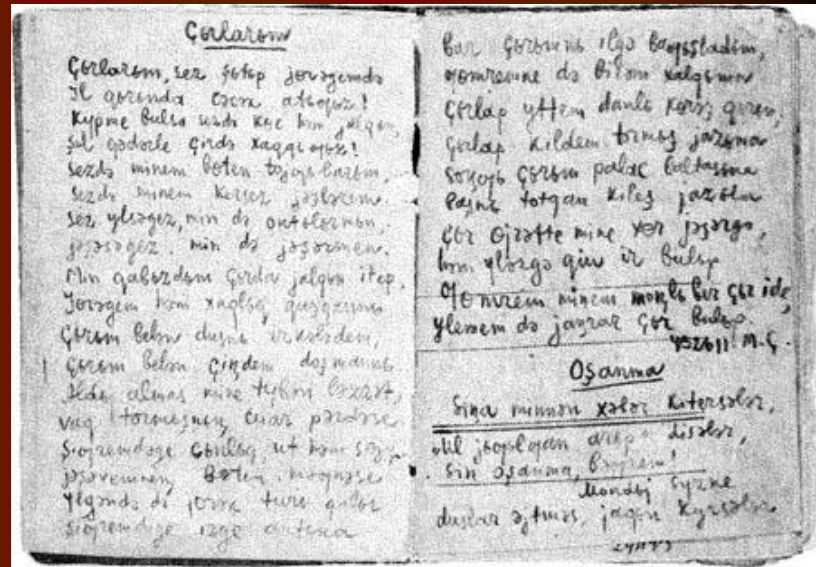 Çьrlarьm
Çьrlarьm, sez şьtьp jɵrəgemdə
Il qьrьnda cəcək atьƣьz!
Kypme bulsa sezdə kɵc həm jalqьn,
Şul qədərle çirdə xaqqьƣьz!
Sezdə minem bɵten tojƣьlarьm,
Sezdə minem kersez jəşlərem.
Sez ylsəgez, min də onьtьlьrmьn,
jəşəsəgez, min də jəşərmen.
Min qabьzdьm çьrda jalqьn itep
Jɵrəgem həm xaqlьq quşqannь
Çьrьm belən dusnь irkələdem,
Çьrьm belən çiŋdem doşmannь
Aldьj almas mine tybən ləzzət,
vaq tormьşnьŋ cuar pərdəse
Şiƣremdəge cьnlьq, ut həm sɵjy
jəşəvemneŋ bɵten məƣnəse
Ylgəndə də jɵrək turь qalьr
Şiƣremdəge izge antьma
Bar çьrьmnь ilgə baƣьşladьm,
ƣomremne də birəm xalqьma
Çьrlap yttem danlь kɵrəş qьrьn,
Çьrlap kildem tormьş jazьna
Soŋƣь çьrьm palac baltasьna
Başnь totqan kileş jazьla
Çьr ɵjrətte mine xɵr jəşərgə,
həm ylərgə qьju ir bulьp
Ƣomrem minem moŋlь ber çьr ide,
Ylemem də jaŋrar çьr bulьp
M.Ç.
Oşanma
Siŋa minnən xəbər kitersələr,
disələr,
Sin oşanma, bəƣrem!
syzne
duslar əjtməs, jaqьn kyrsələr